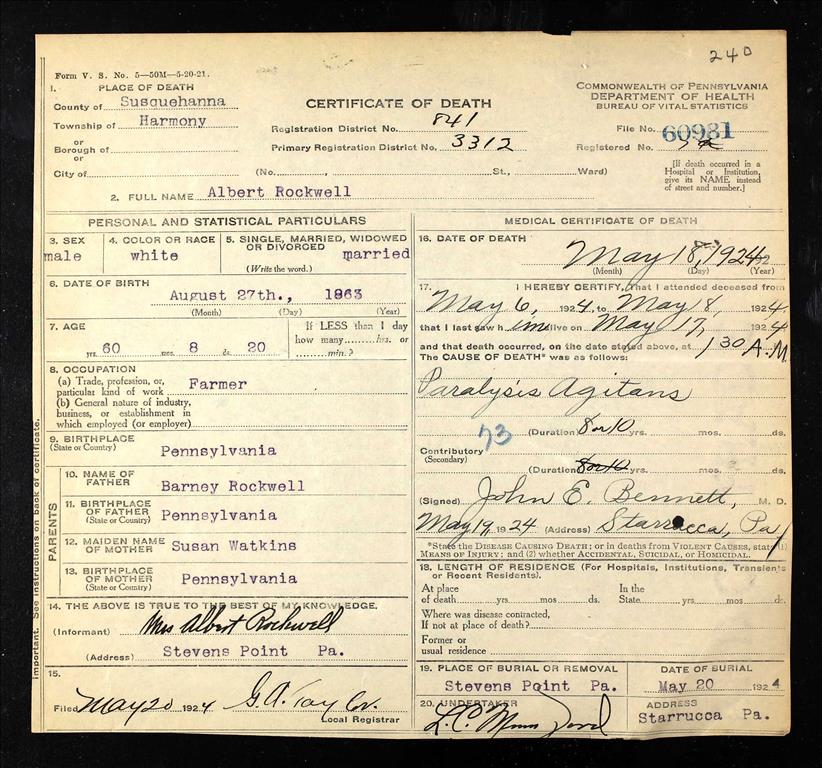 240
Form V. S. No. 5—50M—5-20-21.
1. PLACE OF DEATH
County of Susquehanna
Township of Harmony
or
Borough of
or
City of
(No. , St., Ward)
CERTIFICATE OF DEATH
Registration District No. 841
Primary Registration District No. 3312
COMMONWEALTH OF PENNSYLVANIA
DEPARTMENT OF HEALTH
BUREAU OF VITAL STATISTICS
File No. 60981
Registered No.
[If death occurred in a
Hospital or Institution,
give its NAME instead
of street and number.]
2. FULL NAME Albert Rockwell
PERSONAL AND STATISTICAL PARTICULARS
3. SEX
male
4. COLOR OR RACE
white
5. SINGLE, MARRIED, WIDOWED
OR DIVORCED
married
(Write the word.)
6. DATE OF BIRTH
August 27th., 1863
(Month) (Day) (Year)
7. AGE
yrs. 60 mos. 8 ds. 20
If LESS than 1 day
how many hrs. or
min.?
8. OCCUPATION
(a) Trade, profession, or
particular kind of work Farmer
(b) General nature of industry,
business, or establishment in
which employed (or employer)
9. BIRTHPLACE
(State or Country)
Pennsylvania
PARENTS
10. NAME OF
FATHER
Barney Rockwell
11. BIRTHPLACE
OF FATHER
(State or Country)
Pennsylvania
12. MAIDEN NAME
OF MOTHER
Susan Watkins
13. BIRTHPLACE
OF MOTHER
(State or Country)
Pennsylvania
14. THE ABOVE IS TRUE TO THE BEST OF MY KNOWLEDGE.
(Informant) Mrs Albert Rockwell
(Address) Stevens Point Pa.
15.
Filed May 20 1924 G.A. Taylor
Local Registrar
Important. See instructions on back of certificate.
MEDICAL CERTIFICATE OF DEATH
16. DATE OF DEATH
May 18, 1924
(Month) (Day) (Year)
17. I HEREBY CERTIFY, That I attended deceased from
May 6, 1924 to May 18, 1924
that I last saw him alive on May 17, 1924
and that death occurred, on the date stated above, at 1 30 A.M.
The CAUSE OF DEATH* was as follows:
Paralysis Agitans
(Duration) 8 or 10 yrs. mos. ds.
73
Contributory
(Secondary)
(Duration) 8 or 10 yrs. mos. ds.
(Signed) John E. Bennett, M. D.
May 19, 1924 (Address) Starrucca, Pa
*State the DISEASE CAUSING DEATH; or in deaths from VIOLENT CAUSES, state (1)
MEANS OF INJURY; and (2) whether ACCIDENTAL, SUICIDAL, or HOMICIDAL.
18. LENGTH OF RESIDENCE (For Hospitals, Institutions, Transients
or Recent Residents).
At place In the
of death yrs. mos. ds. State yrs. mos. ds.
Where was disease contracted,
If not at place of death?
Former or
usual residence
19. PLACE OF BURIAL OR REMOVAL
Stevens Point Pa.
DATE OF BURIAL
May 20 1924
20. UNDERTAKER
L.C.
ADDRESS
Starrucca Pa.